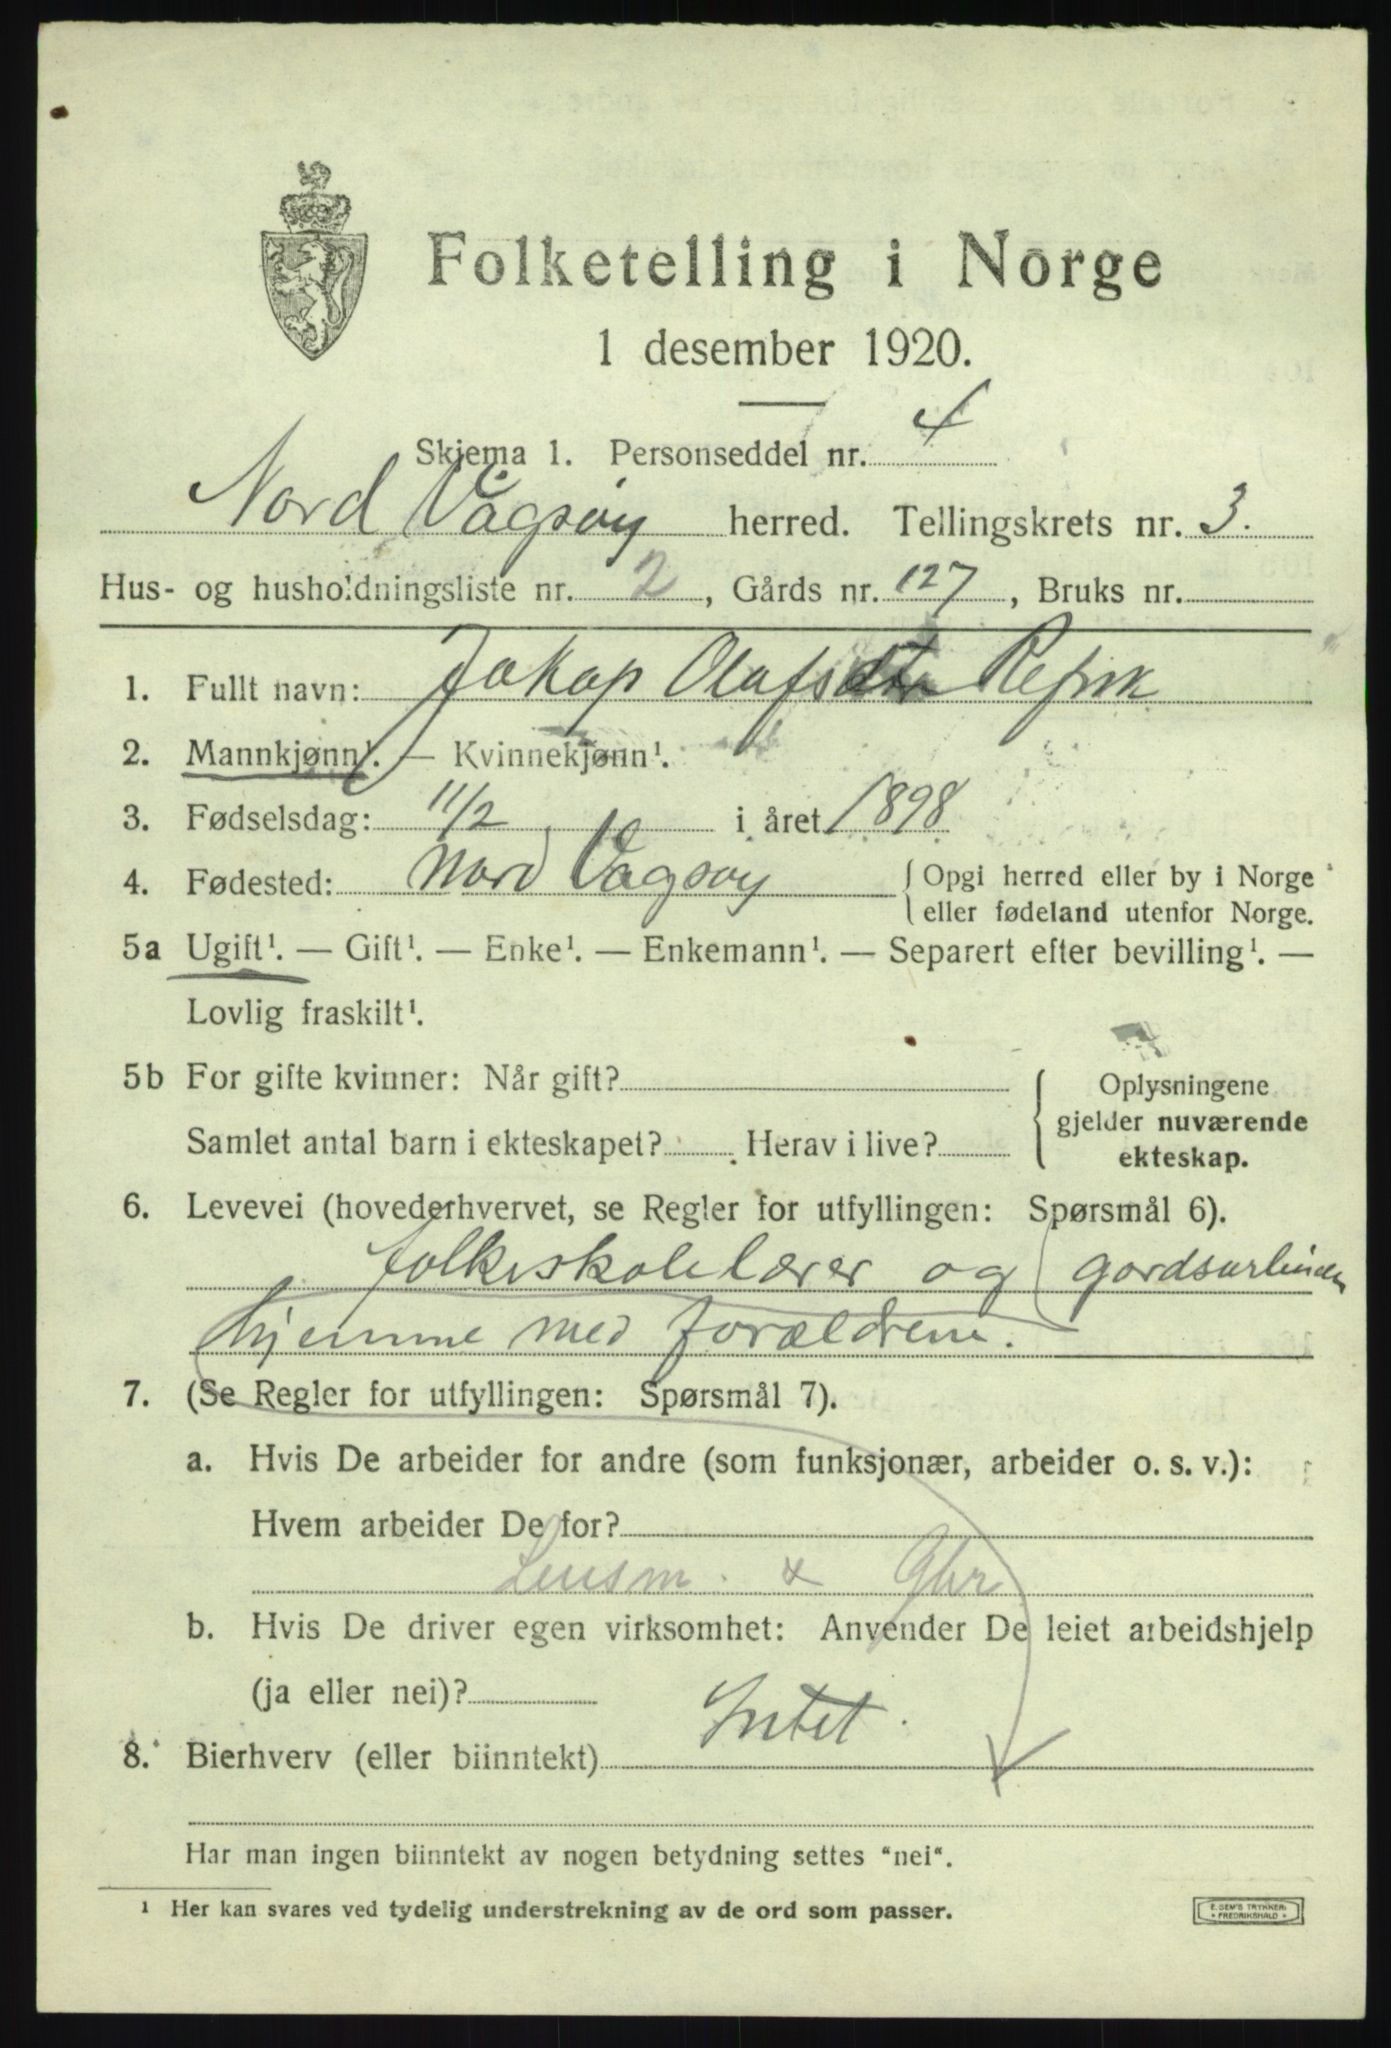 Folketelling i Norge
1 desember 1920.
Skjema 1. Personseddel nr. 4
Nord Vågsøy herred. Tellingskrets nr. 3.
Hus- og husholdningsliste nr. 2, Gårds nr. 127, Bruks nr.
1. Fullt navn: Jakop Olafsen Refvik
2. Mannkjønn¹. — Kvinnekjønn¹.
3. Fødselsdag: 11/2 i året 1898
4. Fødested: Nord Vågsøy { Opgi herred eller by i Norge
eller fødeland utenfor Norge.
5a Ugift¹. — Gift¹. — Enke¹. — Enkemann¹. — Separert efter bevilling¹. —
Lovlig fraskilt¹.
5b For gifte kvinner: Når gift?
Samlet antal barn i ekteskapet? Herav i live?
Oplysningene
gjelder nuværende
ekteskap.
6. Levevei (hovederhvervet, se Regler for utfyllingen: Spørsmål 6).
folkeskolelærer og gardsarbeider
hjemme med forældrene.
7. (Se Regler for utfyllingen: Spørsmål 7).
a. Hvis De arbeider for andre (som funksjonær, arbeider o. s. v.):
Hvem arbeider De for?
x Gbr
b. Hvis De driver egen virksomhet: Anvender De leiet arbeidshjelp
(ja eller nei)?
8. Bierhverv (eller biinntekt) Intet.
Har man ingen biinntekt av nogen betydning settes "nei".
¹ Her kan svares ved tydelig understrekning av de ord som passer.
E. SEM'S TRYKKERI
FREDRIKSHALD